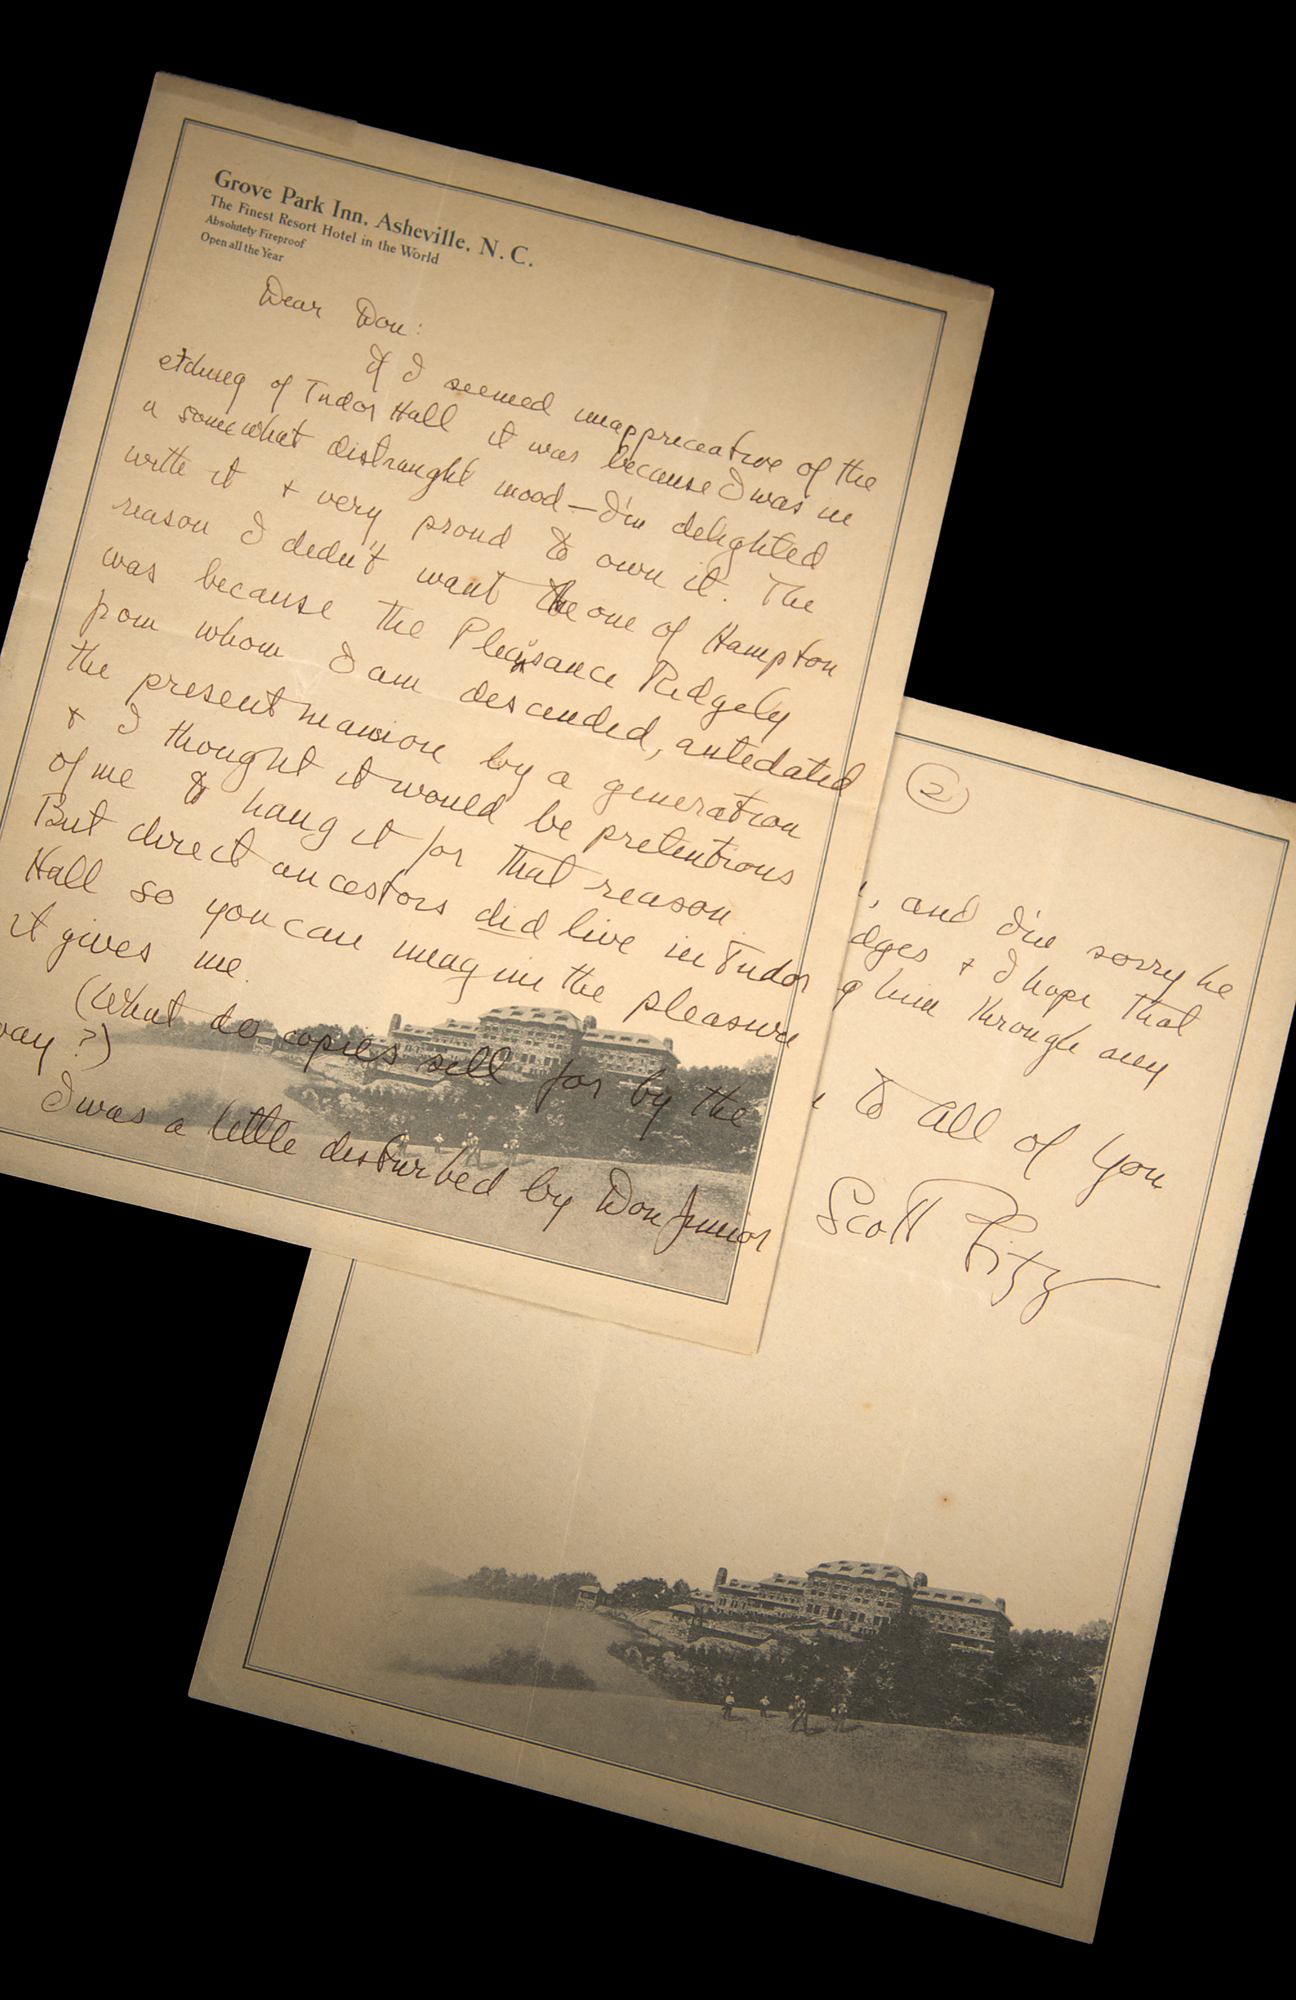 Grove Park Inn, Asheville, N. C.
The Finest Resort Hotel in the World
Absolutely Fireproof
Open all the Year
Dear Don:
If I seemed unappreceative of the
etching of Tudor Hall it was because I was in
a somewhat distraught mood—I'm delighted
with it + very proud to own it. The
reason I didn't want the one of Hampton
was because the Pleasance Ridgely
from whom I am descended, antedated
the present mansion by a generation
+ I thought it would be pretentious
of me to hang it for that reason.
But direct ancestors did live in Tudor
Hall so you can imagine the pleasure
it gives me.
(What do copies sell for by the
way?)
I was a little disturbed by Don Junior
2
, and I'm sorry he
dges + I hope that
g him through any
to all of you
Scott Fitz